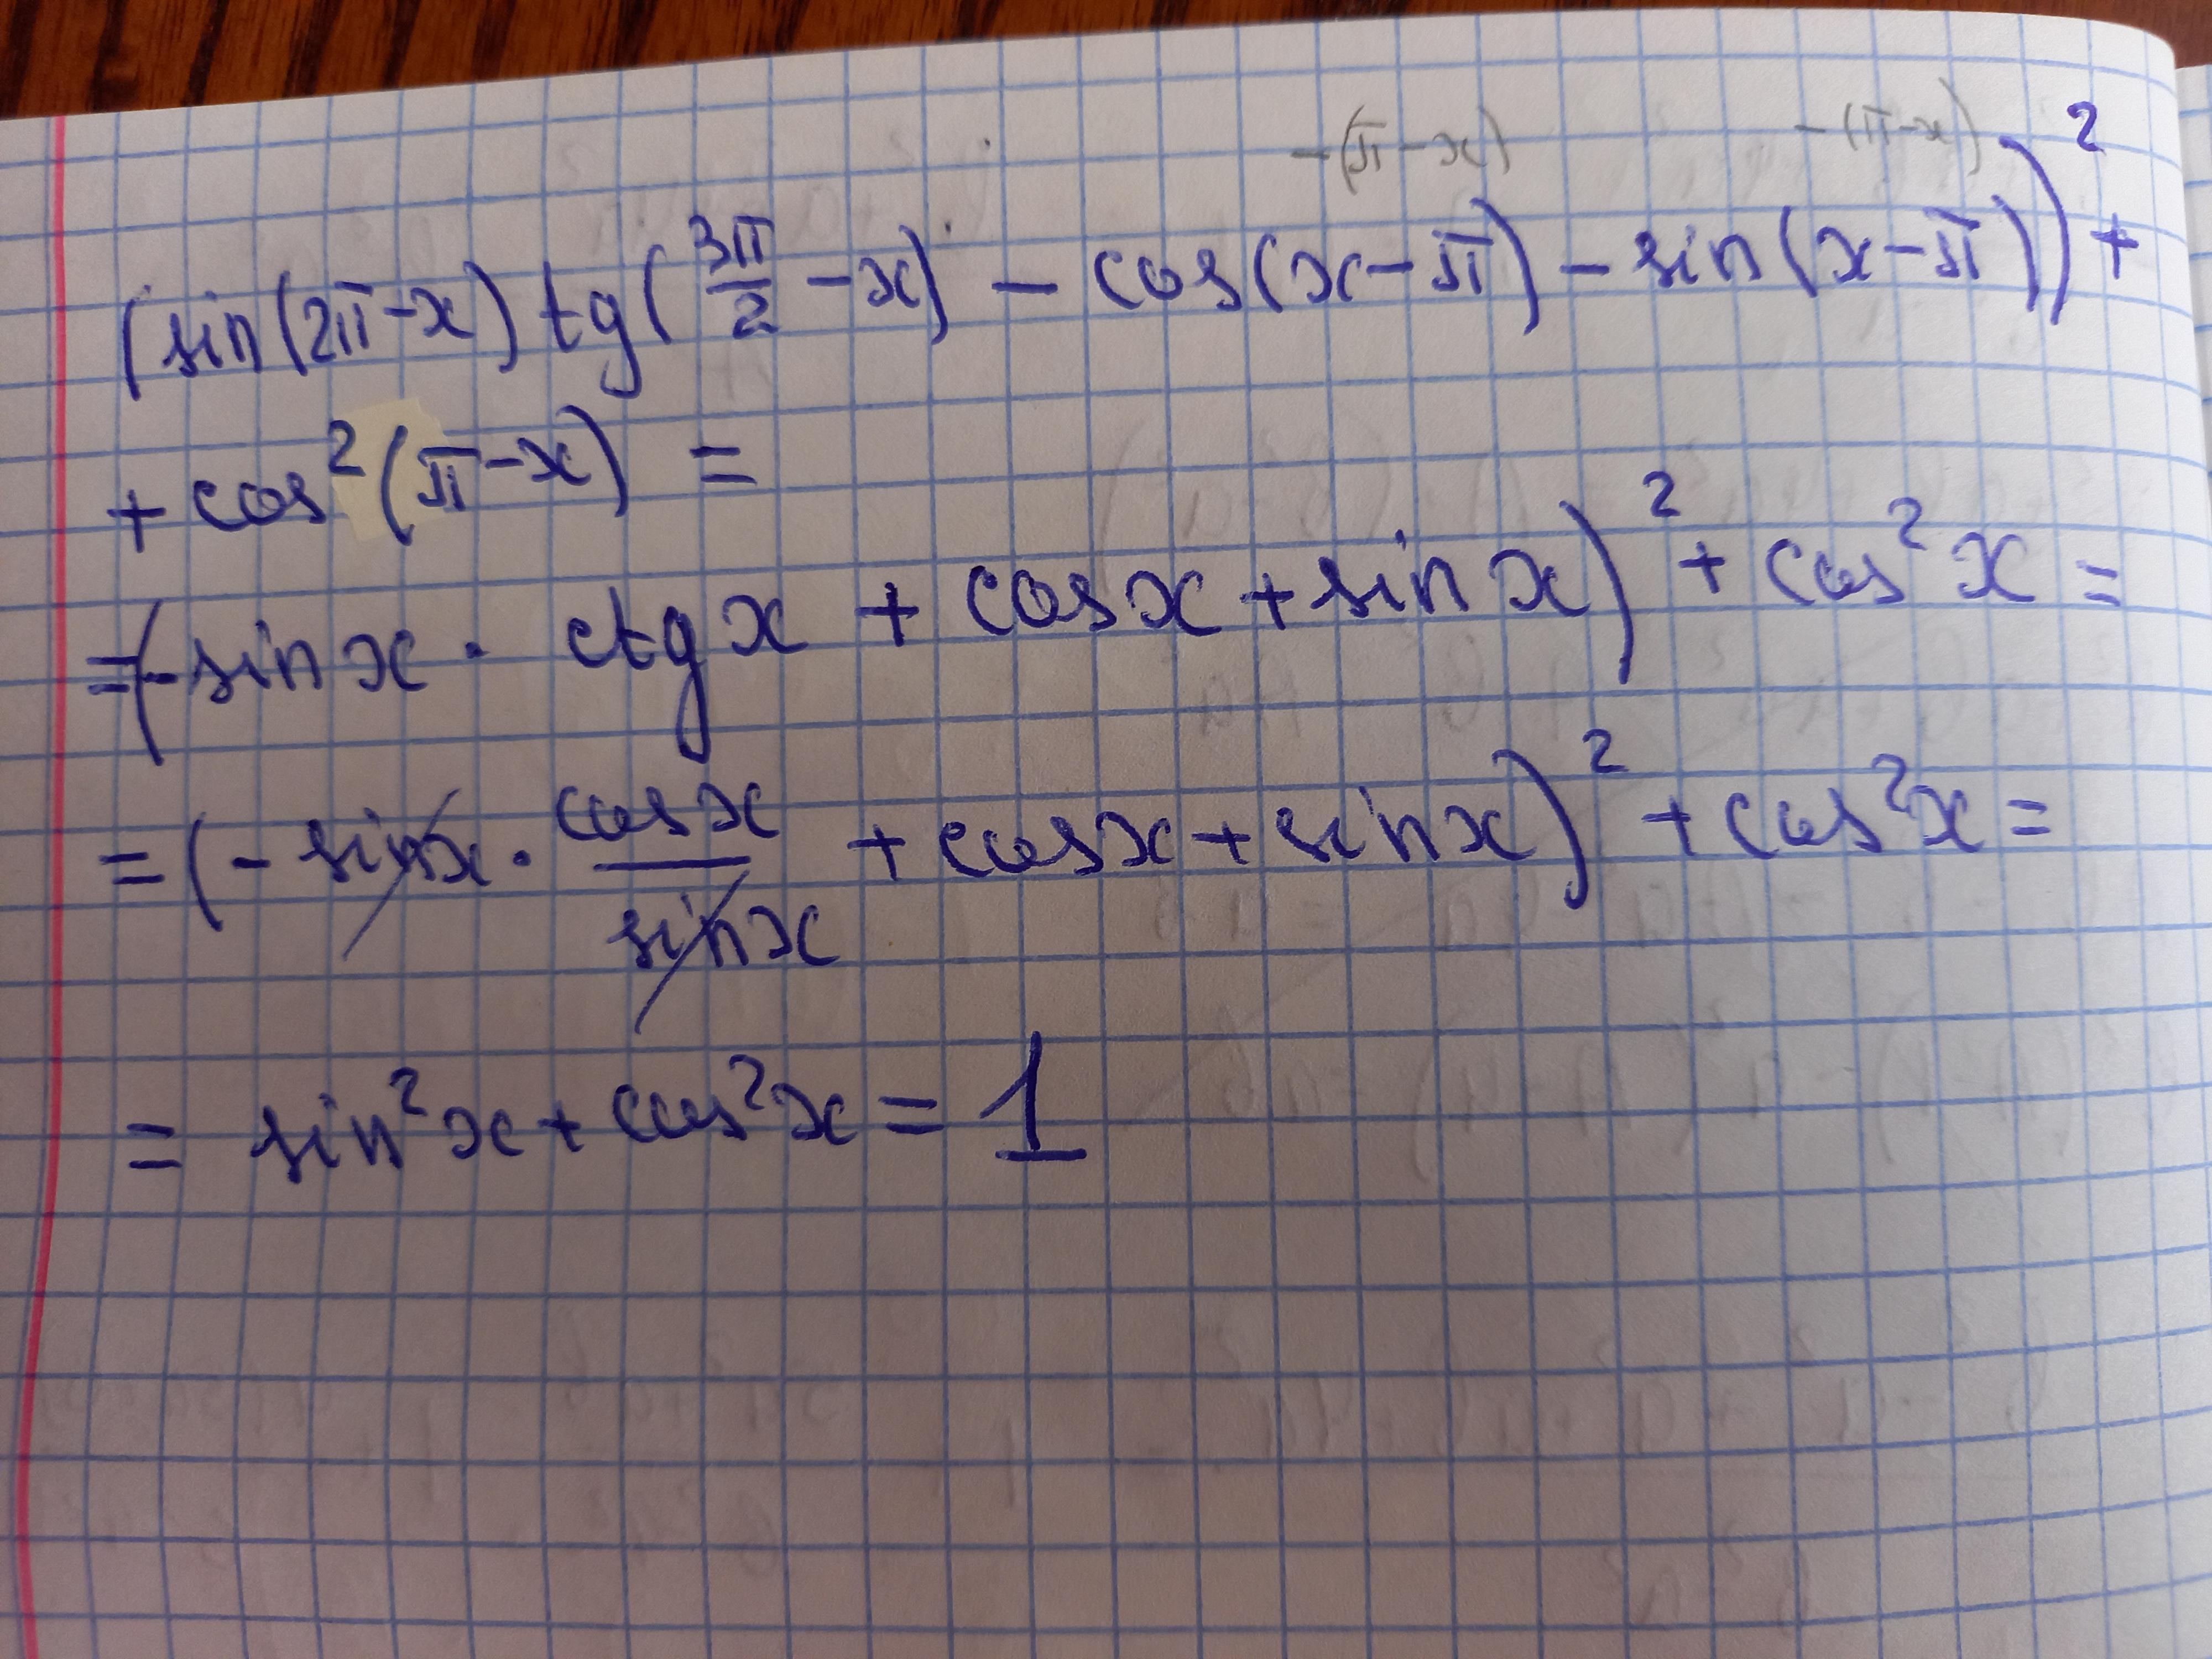 -(π-x) -(π-x)
(sin(2π-x) tg(3π/2 -x) - cos(x-π) - sin(x-π))² +
+ cos²(π-x) =
=(-sin x · ctg x + cos x + sin x)² + cos² x =
= (- sin x · cos x/sin x + cos x + sin x)² + cos² x =
= sin² x + cos² x = 1